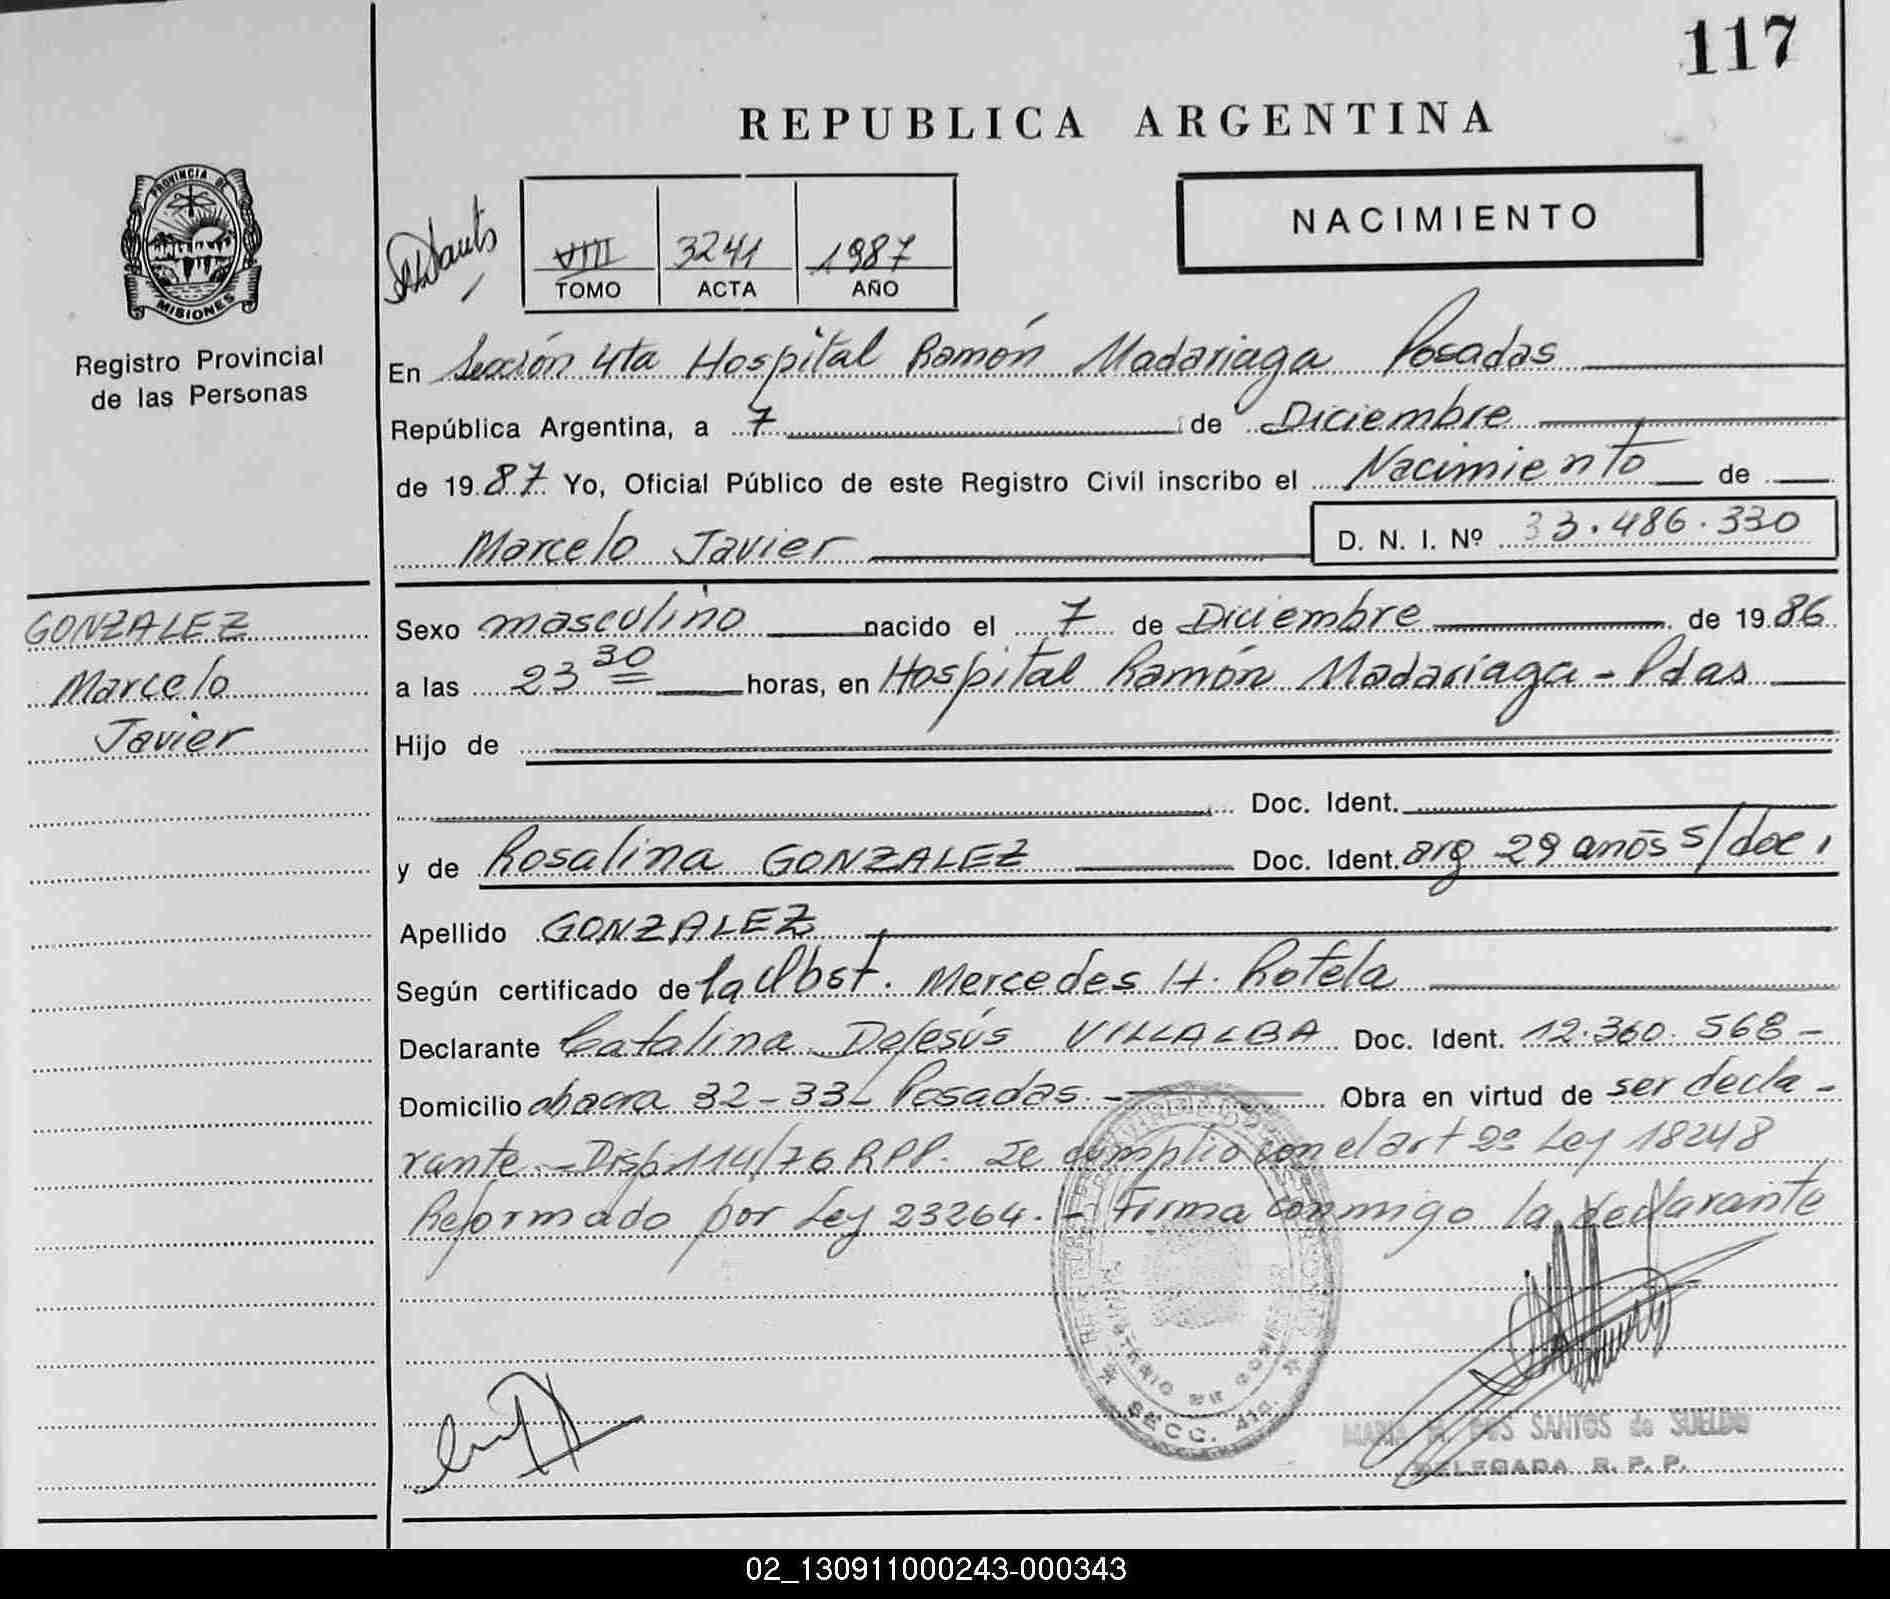 117
REPUBLICA ARGENTINA
PROVINCIA DE
MISIONES
Registro Provincial
de las Personas
VIII 3241 1987
TOMO ACTA AÑO
NACIMIENTO
En Sección 4ta Hospital Ramón Madariaga Posadas
República Argentina, a 7 de Diciembre
de 1987 Yo, Oficial Público de este Registro Civil inscribo el Nacimiento de
Marcelo Javier D. N. I. Nº 33.486.330
GONZALEZ
Marcelo
Javier
Sexo masculino nacido el 7 de Diciembre de 1986
a las 23 30 horas, en Hospital Ramón Madariaga - Pdas
Hijo de
Doc. Ident.
y de Rosalina GONZALEZ Doc. Ident. arg 29 años s/doc.
Apellido GONZALEZ
Según certificado de la Obst. Mercedes H. Rotela
Declarante Catalina DeJesús VILLALBA Doc. Ident. 12.360.568 -
Domicilio chacra 32-33 Posadas. - Obra en virtud de ser decla-
rante. - Disp. 114/76 RPP. Se cumplio con el art 2º Ley 18248
Reformado por Ley 23264. - Firma conmigo la declarante
MINISTERIO DE GOBIERNO
SECC. 4ta.
MARIA DOS SANTOS de SUELDO
DELEGADA R. P. P.
02_130911000243-000343